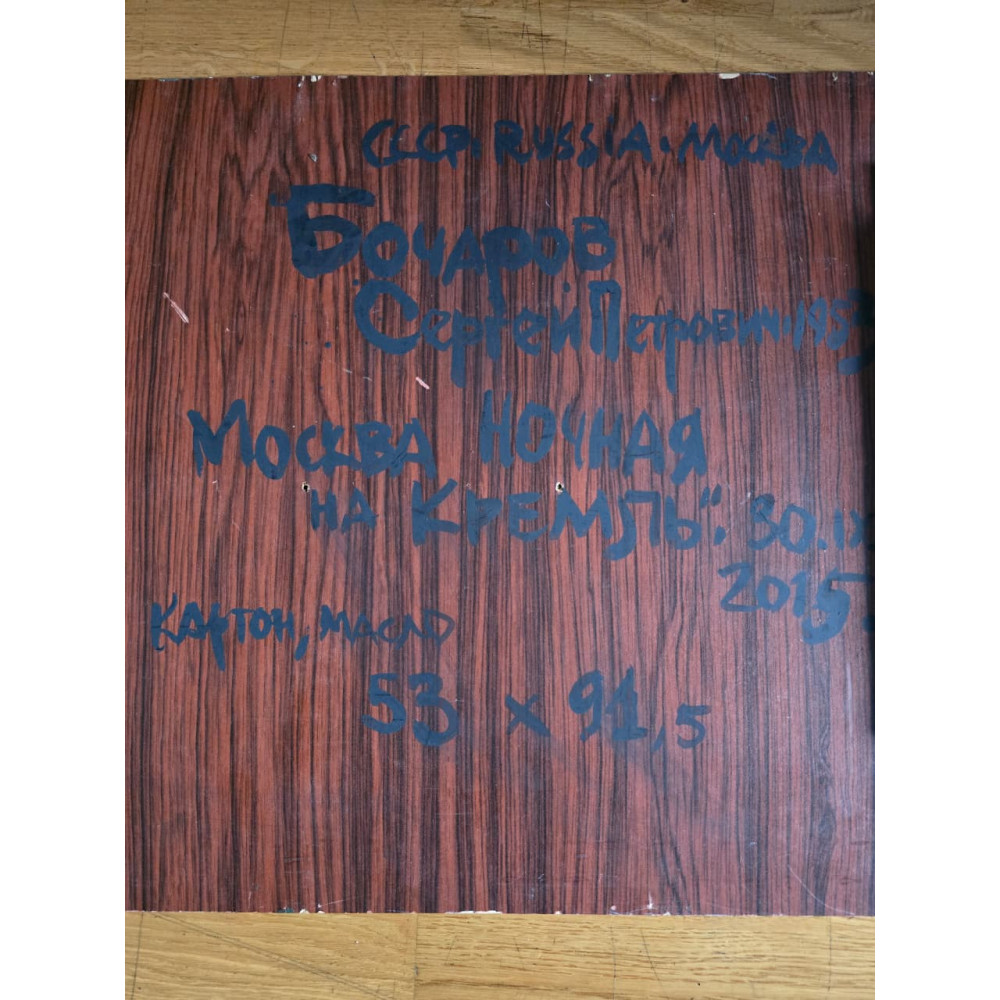 СССР. RUSSIA. МОСКВА
БОЧАРОВ
СЕРГЕЙ ПЕТРОВИЧ. 1953
МОСКВА НОЧНАЯ
НА КРЕМЛЬ". 30.IX
2015
КАРТОН, МАСЛО
53 x 91,5